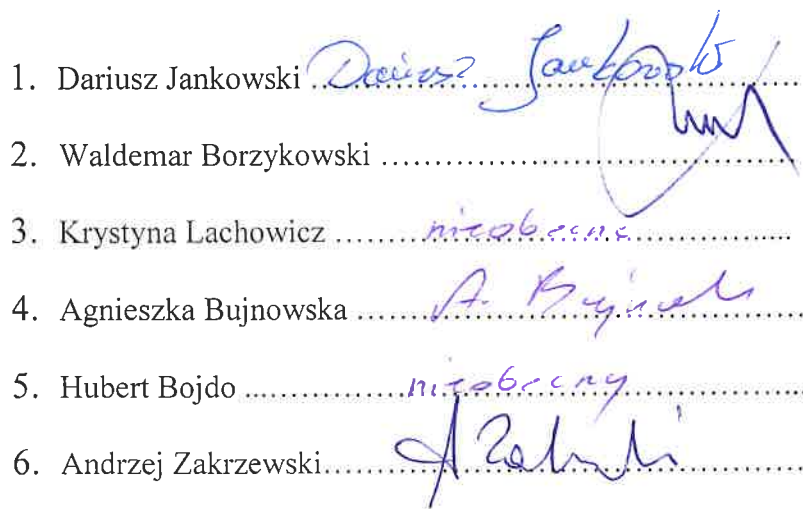 1. Dariusz Jankowski Dariusz Jankowski
2. Waldemar Borzykowski
3. Krystyna Lachowicz nieobecna
4. Agnieszka Bujnowska A. Bujnowska
5. Hubert Bojdo nieobecny
6. Andrzej Zakrzewski